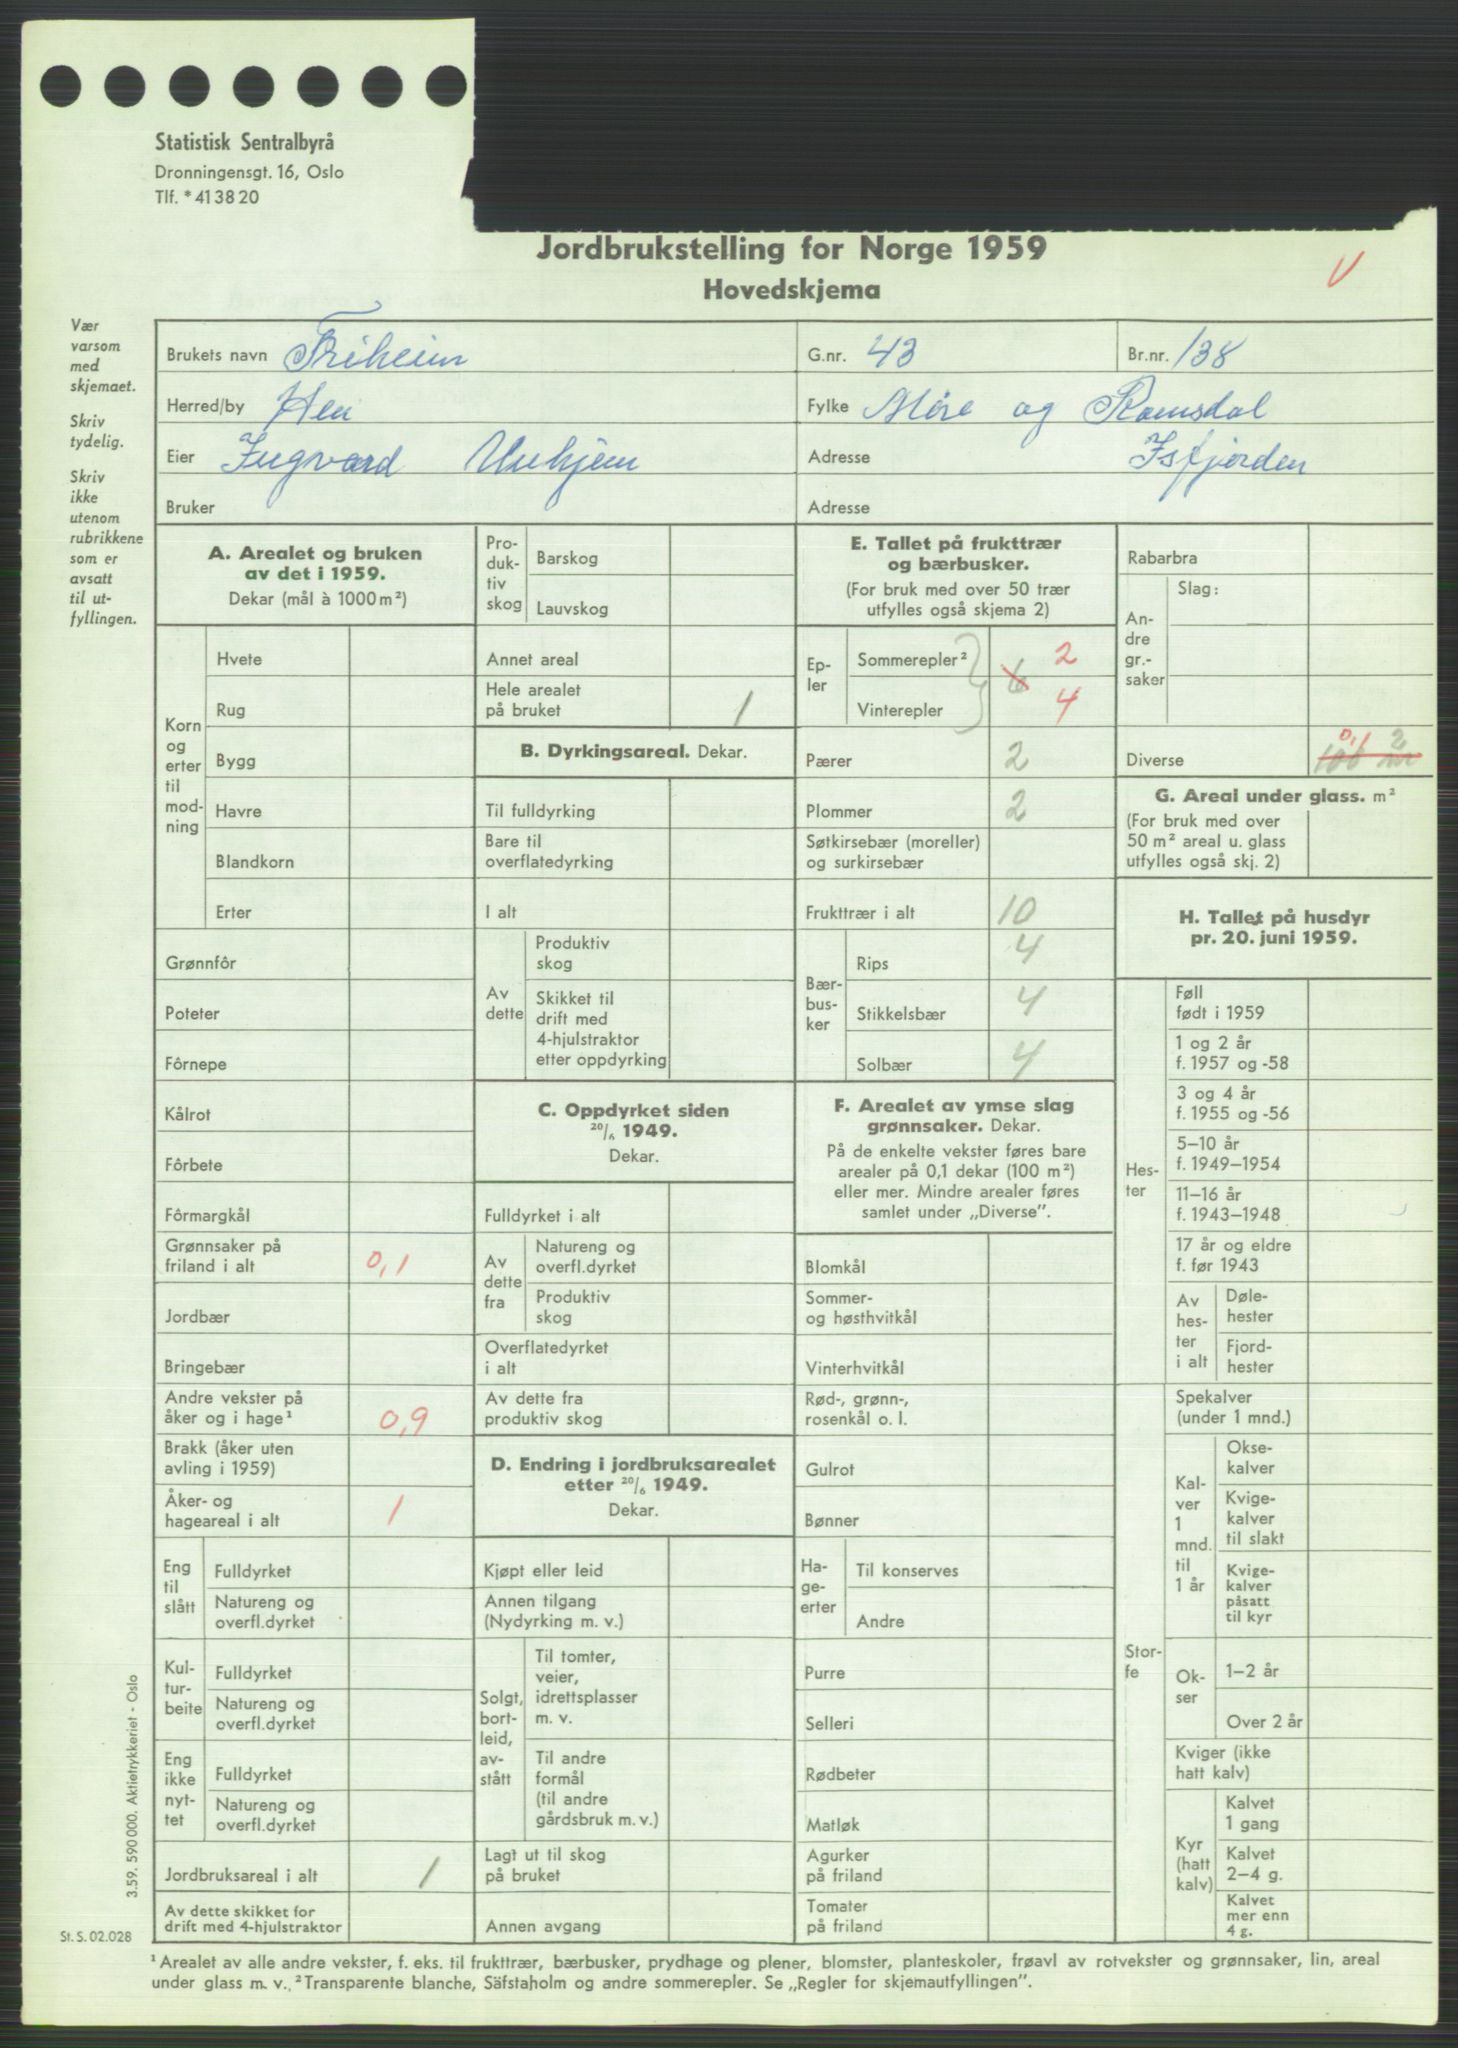 Statistisk Sentralbyrå
Dronningensgt. 16, Oslo
Tlf. * 41 38 20
Jordbrukstelling for Norge 1959
Hovedskjema
V
Vær
varsom
med
skjemaet.
Skriv
tydelig.
Skriv
ikke
utenom
rubrikkene
som er
avsatt
til ut-
fyllingen.
Brukets navn Friheim
G.nr. 43
Br.nr. 138
Herred/by Hen
Fylke Møre og Romsdal
Eier Ingvard Unhjem
Adresse Isfjorden
Bruker
Adresse
A. Arealet og bruken
av det i 1959.
Dekar (mål à 1000 m²)
Korn
og
erter
til
mod-
ning
Hvete
Rug
Bygg
Havre
Blandkorn
Erter
Grønnfôr
Poteter
Fôrnepe
Kålrot
Fôrbete
Fôrmargkål
Grønnsaker på
friland i alt 0,1
Jordbær
Bringebær
Andre vekster på
åker og i hage¹ 0,9
Brakk (åker uten
avling i 1959)
Åker- og
hageareal i alt 1
Eng
til
slått
Fulldyrket
Natureng og
overfl.dyrket
Kul-
tur-
beite
Fulldyrket
Natureng og
overfl.dyrket
Eng
ikke
nyt-
tet
Fulldyrket
Natureng og
overfl.dyrket
Jordbruksareal i alt 1
Av dette skikket for
drift med 4-hjulstraktor
Pro-
duk-
tiv
skog
Barskog
Lauvskog
Annet areal
Hele arealet
på bruket 1
B. Dyrkingsareal. Dekar.
Til fulldyrking
Bare til
overflatedyrking
I alt
Av
dette
Produktiv
skog
Skikket til
drift med
4-hjulstraktor
etter oppdyrking
C. Oppdyrket siden
20/6 1949.
Dekar.
Fulldyrket i alt
Av
dette
fra
Natureng og
overfl.dyrket
Produktiv
skog
Overflatedyrket
i alt
Av dette fra
produktiv skog
D. Endring i jordbruksarealet
etter 20/6 1949.
Dekar.
Kjøpt eller leid
Annen tilgang
(Nydyrking m. v.)
Solgt,
bort-
leid,
av-
stått
Til tomter,
veier,
idrettsplasser
m. v.
Til andre
formål
(til andre
gårdsbruk m. v.)
Lagt ut til skog
på bruket
Annen avgang
E. Tallet på frukttrær
og bærbusker.
(For bruk med over 50 trær
utfylles også skjema 2)
Ep-
ler
Sommerepler² 2
6
Vinterepler 4
Pærer 2
Plommer 2
Søtkirsebær (moreller)
og surkirsebær
Frukttrær i alt 10
Bær-
bus-
ker
Rips 4
Stikkelsbær 4
Solbær 4
F. Arealet av ymse slag
grønnsaker. Dekar.
På de enkelte vekster føres bare
arealer på 0,1 dekar (100 m²)
eller mer. Mindre arealer føres
samlet under „Diverse”.
Blomkål
Sommer-
og høsthvitkål
Vinterhvitkål
Rød-, grønn-,
rosenkål o. l.
Gulrot
Bønner
Ha-
ge-
erter
Til konserves
Andre
Purre
Selleri
Rødbeter
Matløk
Agurker
på friland
Tomater
på friland
Rabarbra
An-
dre
gr.-
saker
Slag:
0,1 2
Diverse 100 m
G. Areal under glass. m²
(For bruk med over
50 m² areal u. glass
utfylles også skj. 2)
H. Tallet på husdyr
pr. 20. juni 1959.
Hes-
ter
Føll
født i 1959
1 og 2 år
f. 1957 og -58
3 og 4 år
f. 1955 og -56
5–10 år
f. 1949–1954
11–16 år
f. 1943–1948
17 år og eldre
f. før 1943
Av
hes-
ter
i alt
Døle-
hester
Fjord-
hester
Stor-
fe
Spekalver
(under 1 mnd.)
Kal-
ver
1
mnd.
til
1 år
Okse-
kalver
Kvige-
kalver
til slakt
Kvige-
kalver
påsatt
til kyr
Ok-
ser
1–2 år
Over 2 år
Kviger (ikke
hatt kalv)
Kyr
(hatt
kalv)
Kalvet
1 gang
Kalvet
2–4 g.
Kalvet
mer enn
4 g.
3.59. 590 000. Aktietrykkeriet - Oslo
St. S. 02.028
¹ Arealet av alle andre vekster, f. eks. til frukttrær, bærbusker, prydhage og plener, blomster, planteskoler, frøavl av rotvekster og grønnsaker, lin, areal
under glass m. v., ² Transparente blanche, Säfstaholm og andre sommerepler. Se „Regler for skjemautfyllingen”.